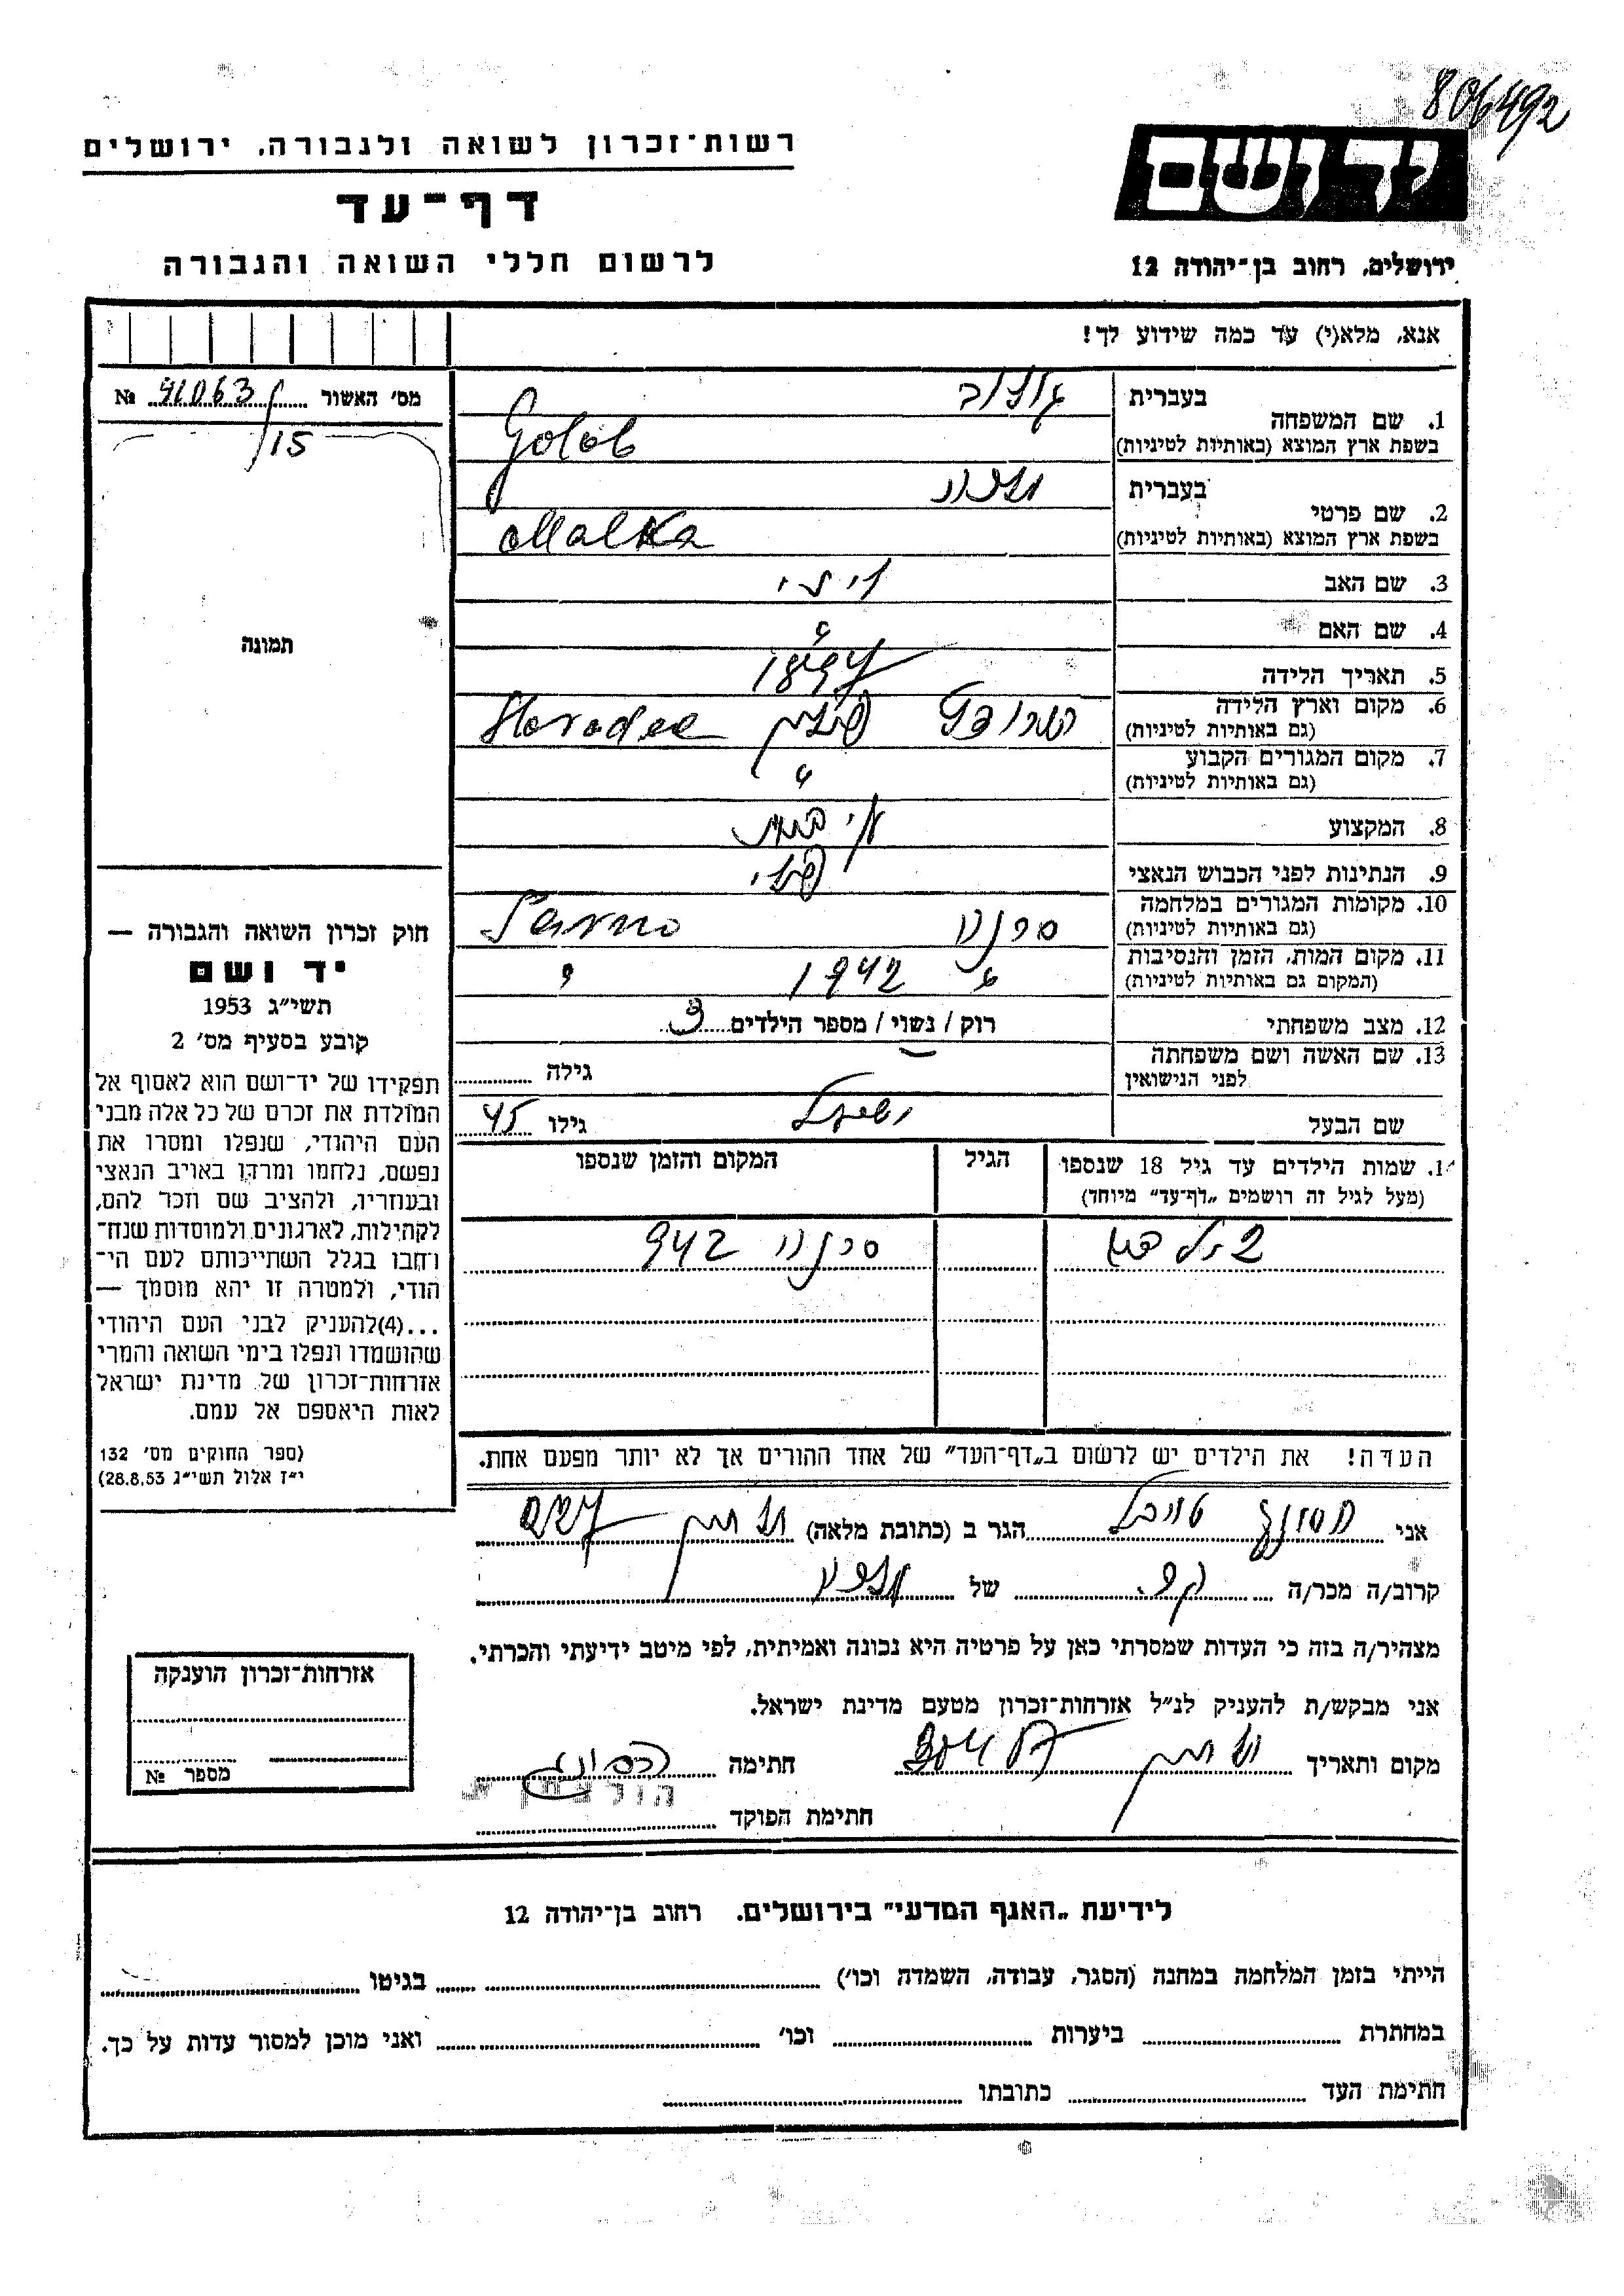 806492
רשות־זכרון לשואה ולגבורה, ירושלים
דף־עד
לרשום חללי השואה והגבורה
יד ושם
ירושלים, רחוב בן־יהודה 12
אנא, מלא(י) עד כמה שידוע לך!
מס׳ האשור 41063 №
/15
תמונה
1. שם המשפחה בעברית גולוב
בשפת ארץ המוצא (באותיות לטיניות) Golob
2. שם פרטי בעברית מלכה
בשפת ארץ המוצא (באותיות לטיניות) Malka
3. שם האב
4. שם האם
5. תאריך הלידה 1897
6. מקום וארץ הלידה פולין Horodec
(גם באותיות לטיניות)
7. מקום המגורים הקבוע "
(גם באותיות לטיניות)
8. המקצוע
9. הנתינות לפני הכבוש הנאצי פולני
10. מקומות המגורים במלחמה סרנה Sarno
(גם באותיות לטיניות)
11. מקום המות, הזמן והנסיבות " 1942 "
(המקום גם באותיות לטיניות)
12. מצב משפחתי רוק / נשוי / מספר הילדים 3
13. שם האשה ושם משפחתה
לפני הנישואין גילה
שם הבעל גילו 45
1. שמות הילדים עד גיל 18 שנספו הגיל המקום והזמן שנספו
(מעל לגיל זה רושמים „דף־עד״ מיוחד)
סרנה 942
הערה! את הילדים יש לרשום ב„דף־העד״ של אחד ההורים אך לא יותר מפעם אחת.
חוק זכרון השואה והגבורה —
יד ושם
תשי״ג 1953
קובע בסעיף מס׳ 2
תפקידו של יד־ושם הוא לאסוף אל
המולדת את זכרם של כל אלה מבני
העם היהודי, שנפלו ומסרו את
נפשם, נלחמו ומרדו באויב הנאצי
ובעוזריו, ולהציב שם וזכר להם,
לקהילות, לארגונים ולמוסדות שנח־
רבו בגלל השתייכותם לעם הי־
הודי, ולמטרה זו יהא מוסמך —
...(4) להעניק לבני העם היהודי
שהושמדו ונפלו בימי השואה והמרי
אזרחות־זכרון של מדינת ישראל
לאות היאספם אל עמם.
(ספר החוקים מס׳ 132
י״ז אלול תשי״ג 28.8.53)
אני הגר ב (כתובת מלאה)
קרוב/ה מכר/ה של מלכה
מצהיר/ה בזה כי העדות שמסרתי כאן על פרטיה היא נכונה ואמיתית, לפי מיטב ידיעתי והכרתי.
אני מבקש/ת להעניק לנ״ל אזרחות־זכרון מטעם מדינת ישראל.
מקום ותאריך חתימה
חתימת הפוקד
אזרחות־זכרון הוענקה
מספר №
לידיעת „האגף המדעי״ בירושלים. רחוב בן־יהודה 12
הייתי בזמן המלחמה במחנה (הסגר, עבודה, השמדה וכו׳) בגיטו
במחתרת ביערות וכו׳ ואני מוכן למסור עדות על כך.
חתימת העד כתובתו